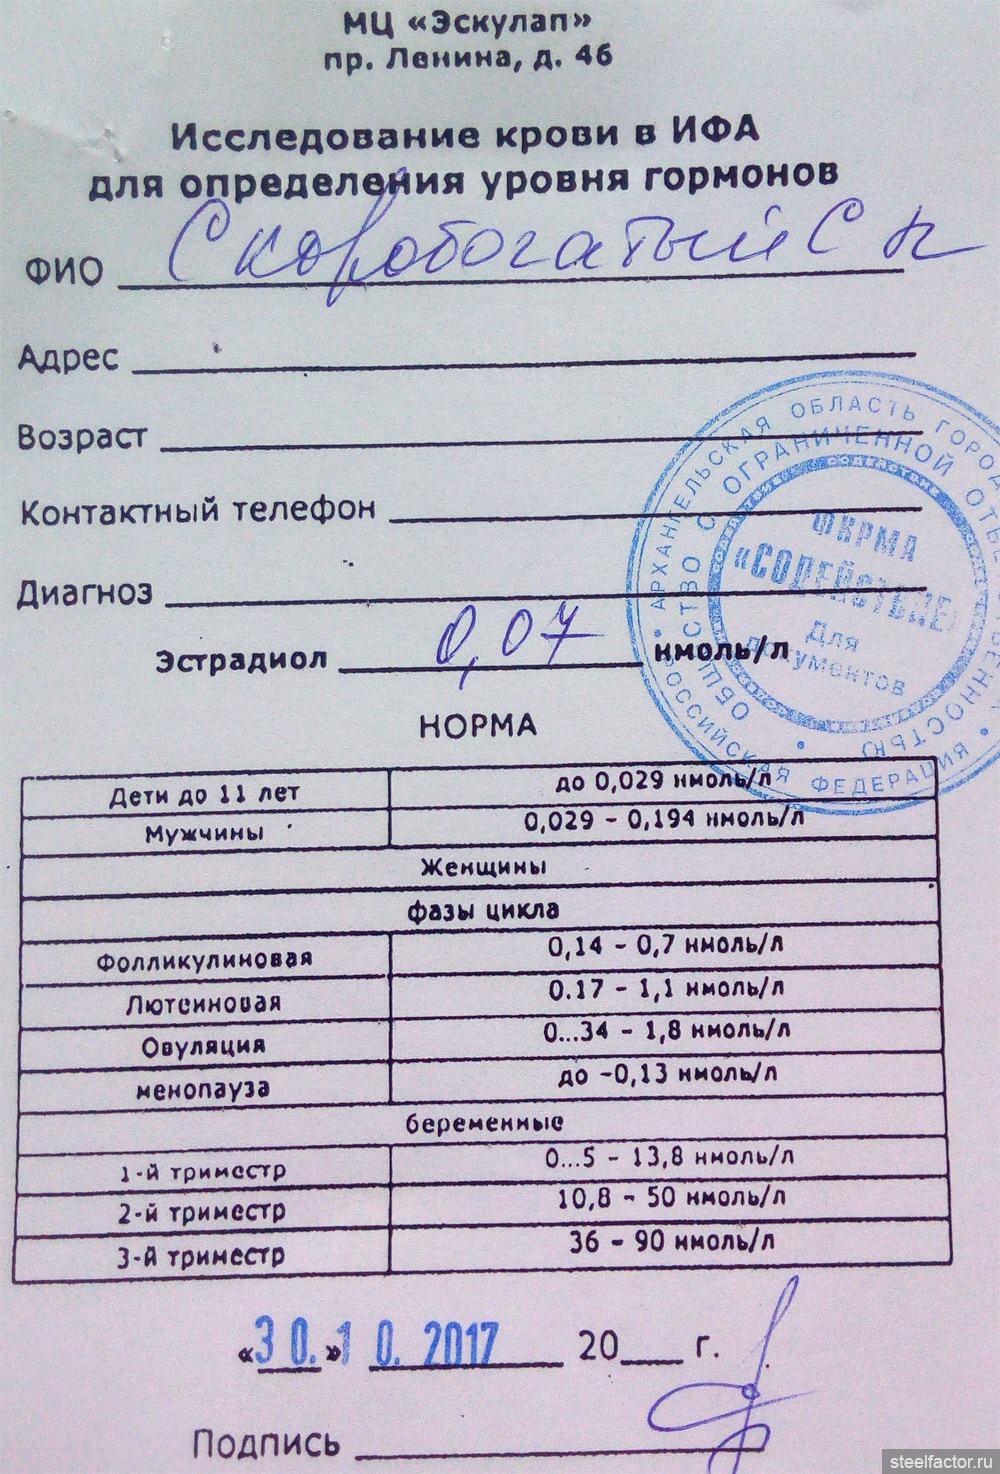 МЦ «Эскулап»
пр. Ленина, д. 46
Исследование крови в ИФА
для определения уровня гормонов
ФИО Скоробогатый С
Адрес
Возраст
Контактный телефон
Диагноз
Эстрадиол 0,07 нмоль/л
АРХАНГЕЛЬСКАЯ ОБЛАСТЬ ГОРОД
РОССИЙСКАЯ ФЕДЕРАЦИЯ
ОБЩЕСТВО С ОГРАНИЧЕННОЙ ОТВЕТСТВЕННОСТЬЮ
ФИРМА
«СОДЕЙСТВИЕ»
Для
документов
НОРМА
Дети до 11 лет до 0,029 нмоль/л
Мужчины 0,029 – 0,194 нмоль/л
Женщины
фазы цикла
Фолликулиновая 0,14 – 0,7 нмоль/л
Лютеиновая 0.17 – 1,1 нмоль/л
Овуляция 0...34 – 1,8 нмоль/л
менопауза до –0,13 нмоль/л
беременные
1-й триместр 0...5 – 13,8 нмоль/л
2-й триместр 10,8 – 50 нмоль/л
3-й триместр 36 – 90 нмоль/л
«30.»10. 2017 20 г.
Подпись
steelfactor.ru